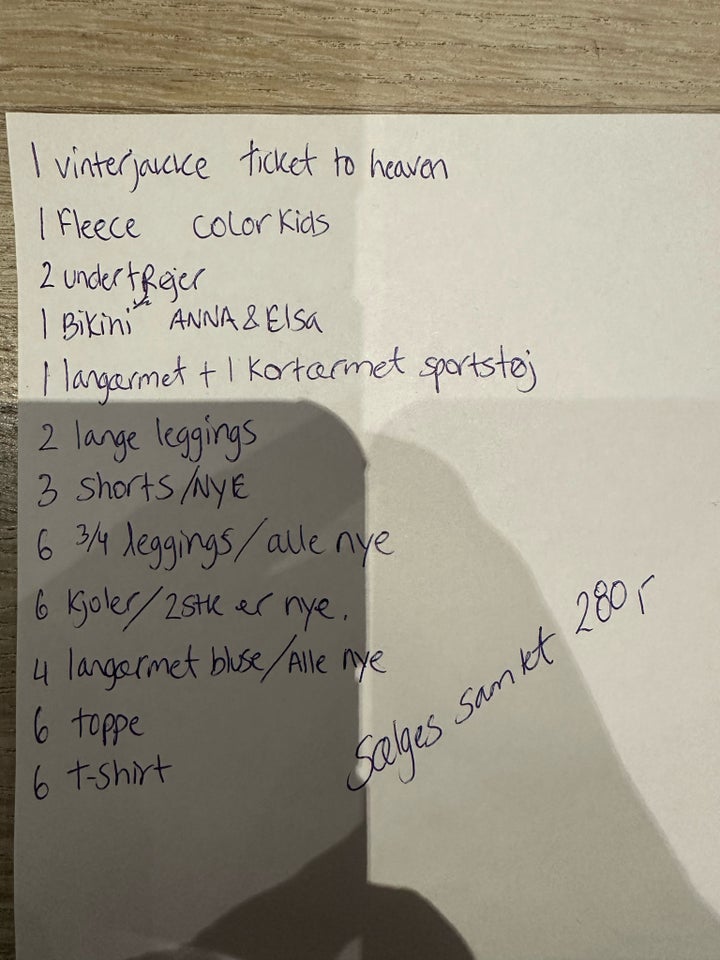 1 vinterjakke ticket to heaven
1 Fleece color Kids
2 undertrøjer
1 Bikini ANNA & Elsa
1 langærmet + 1 kortærmet sportstøj
2 lange leggings
3 shorts/NYE
6 3/4 leggings/alle nye
6 Kjoler/2stk er nye.
4 langærmet bluse/Alle nye
6 toppe
6 t-shirt
Sælges samlet 280 r